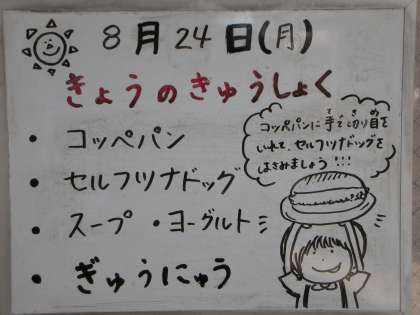 8月24日(月)
きょうのきゅうしょく
・コッペパン
・セルフツナドッグ
・スープ ・ヨーグルト
・ぎゅうにゅう
コッペパンに手で切り目を
て き め
いれて、セルフツナドッグを
はさみましょう!!!